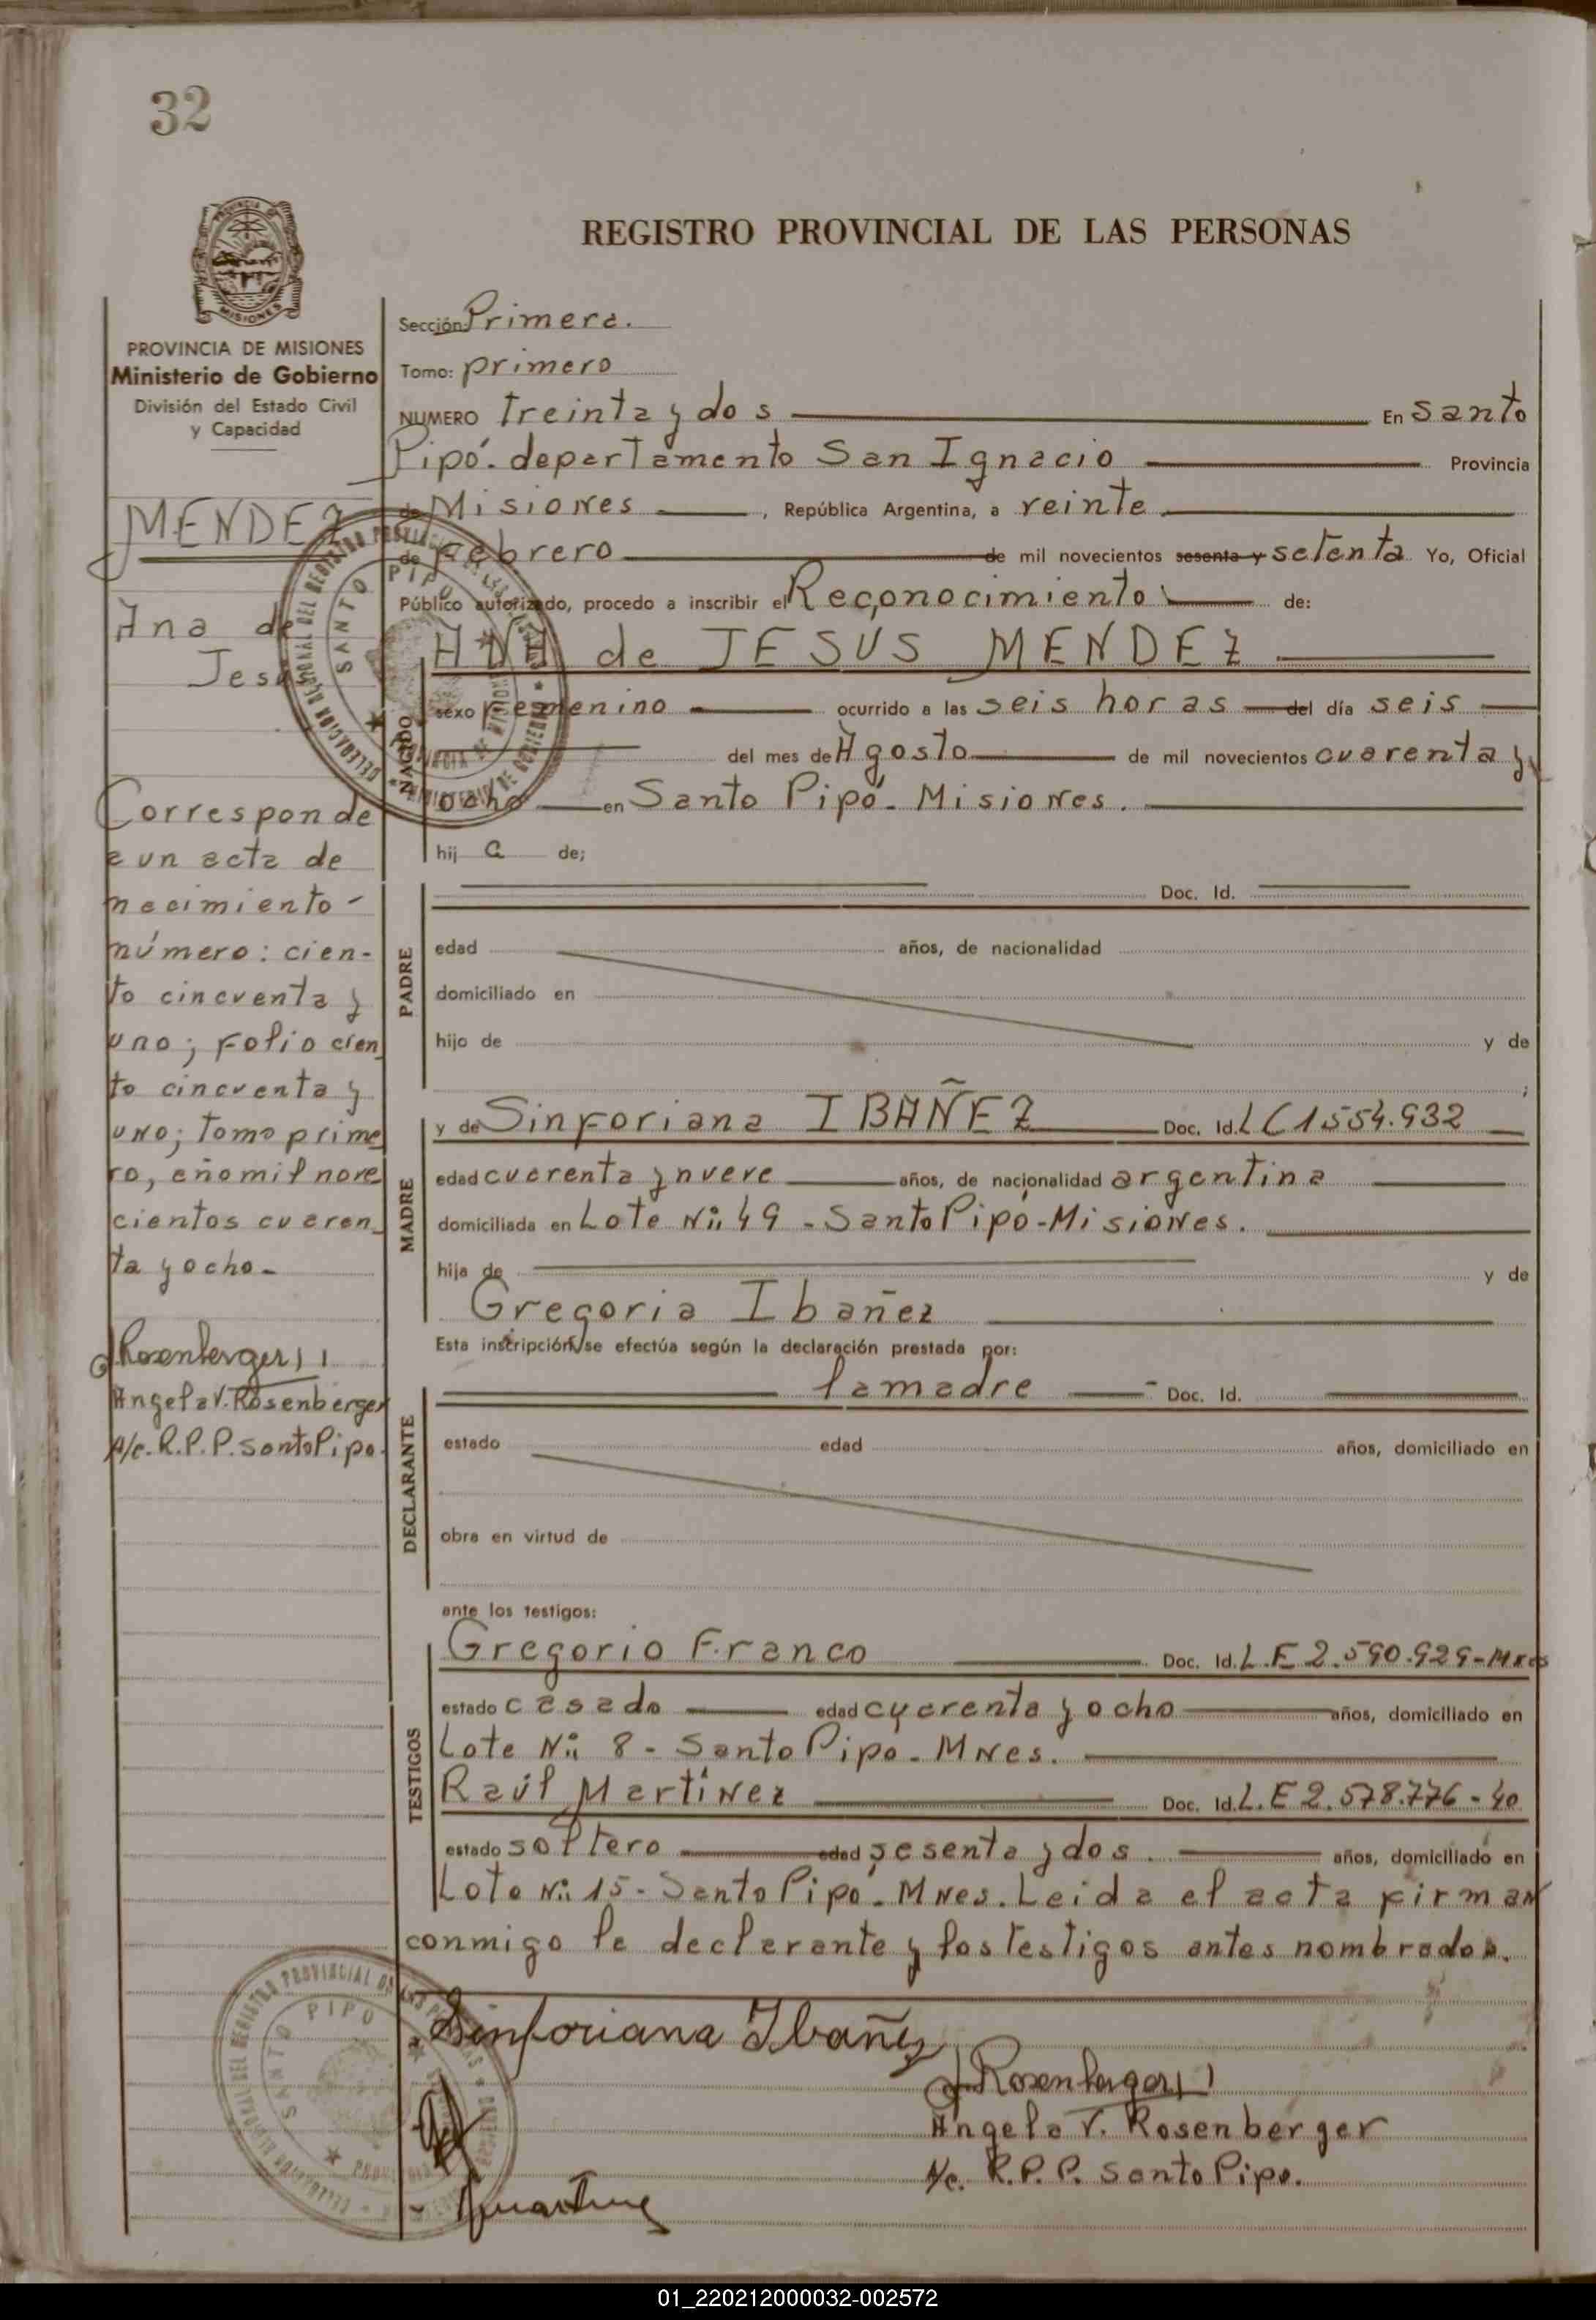 32
REGISTRO PROVINCIAL DE LAS PERSONAS
PROVINCIA DE MISIONES
Ministerio de Gobierno
División del Estado Civil
y Capacidad
MENDEZ
Ana de
Jesús
Corresponde
a un acta de
nacimiento -
número: cien-
to cincuenta y
uno; Folio cien
to cincuenta y
uno; Tomo prime
ro, año mil nove
cientos cuaren
ta y ocho-
Rosenberger
Angela V. Rosenberger
A/c. R.P.P. Santo Pipo.
Sección: Primera.
Tomo: primero
NUMERO Treinta y dos En Santo
Pipó. departamento San Ignacio Provincia
de Misiones, República Argentina, a veinte
de Febrero de mil novecientos sesenta y setenta Yo, Oficial
Público autorizado, procedo a inscribir el Reconocimiento de:
ANA de JESUS MENDEZ
NACIDO
sexo Femenino ocurrido a las seis horas del día seis
del mes de Agosto de mil novecientos cuarenta y
ocho en Santo Pipó- Misiones.
hij a de;
PADRE
Doc. Id.
edad años, de nacionalidad
domiciliado en
hijo de y de
;
MADRE
y de Sinforiana IBAÑEZ Doc. Id. LC 1554.932
edad cuarenta y nueve años, de nacionalidad argentina
domiciliada en Lote Nº 49 - Santo Pipó-Misiones.
hija de y de
Gregoria Ibañez
Esta inscripción se efectúa según la declaración prestada por:
DECLARANTE
la madre Doc. Id.
estado edad años, domiciliado en
obra en virtud de
ante los testigos:
TESTIGOS
Gregorio Franco Doc. Id. L.E 2.590.929-Mnes
estado casado edad cuarenta y ocho años, domiciliado en
Lote Nº 8 - Santo Pipo- MNes.
Raúl Martinez Doc. Id. L.E 2.578.776 - 40
estado soltero edad sesenta y dos. años, domiciliado en
Lote Nº 15- Santo Pipó- MNes. Leida el acta firman
conmigo la declarante y los testigos antes nombrados.
Sinforiana Ibañez
Rosenberger
Angela V. Rosenberger
A/c. R.P.P. Santo Pipo.
SANTO PIPO
01_220212000032-002572